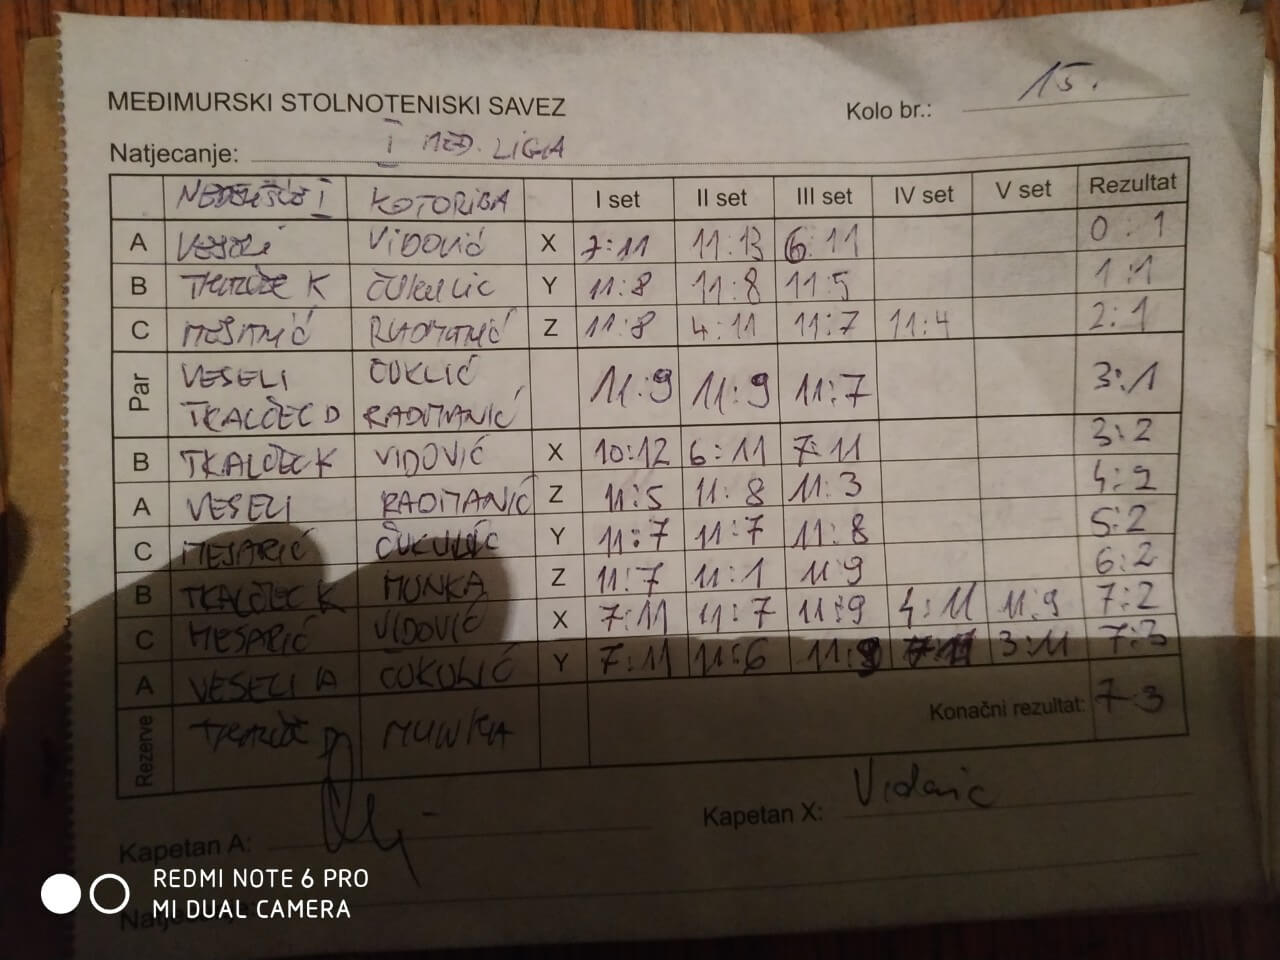 MEĐIMURSKI STOLNOTENISKI SAVEZ
Kolo br.: 15.
Natjecanje: I MEĐ. LIGA
NEDELIŠĆE I KOTORIBA I set II set III set IV set V set Rezultat
A VESELI VIDOVIĆ X 7:11 11:13 6:11 0:1
B TKALČEC K ČUKULIĆ Y 11:8 11:8 11:5 1:1
C MESARIĆ RADMANIĆ Z 11:8 4:11 11:7 11:4 2:1
Par VESELI ČUKLIĆ 11:9 11:9 11:7 3:1
TKALČEC D RADMANIĆ
B TKALČEC K VIDOVIĆ X 10:12 6:11 7:11 3:2
A VESELI RADMANIĆ Z 11:5 11:8 11:3 4:2
C MESARIĆ ČUKULIĆ Y 11:7 11:7 11:8 5:2
B TKALČEC K MUNKA Z 11:7 11:1 11 9 6:2
C MESARIĆ VIDOVIĆ X 7:11 11:7 11:9 4:11 11:9 7:2
A VESELI A ČUKULIĆ Y 7:11 11:6 11:9 7:11 3:11 7:3
Rezerve TKALČEC D MUNKA Konačni rezultat: 7:3
Kapetan A: Kapetan X: Vidović
Natjecanje:
REDMI NOTE 6 PRO
MI DUAL CAMERA